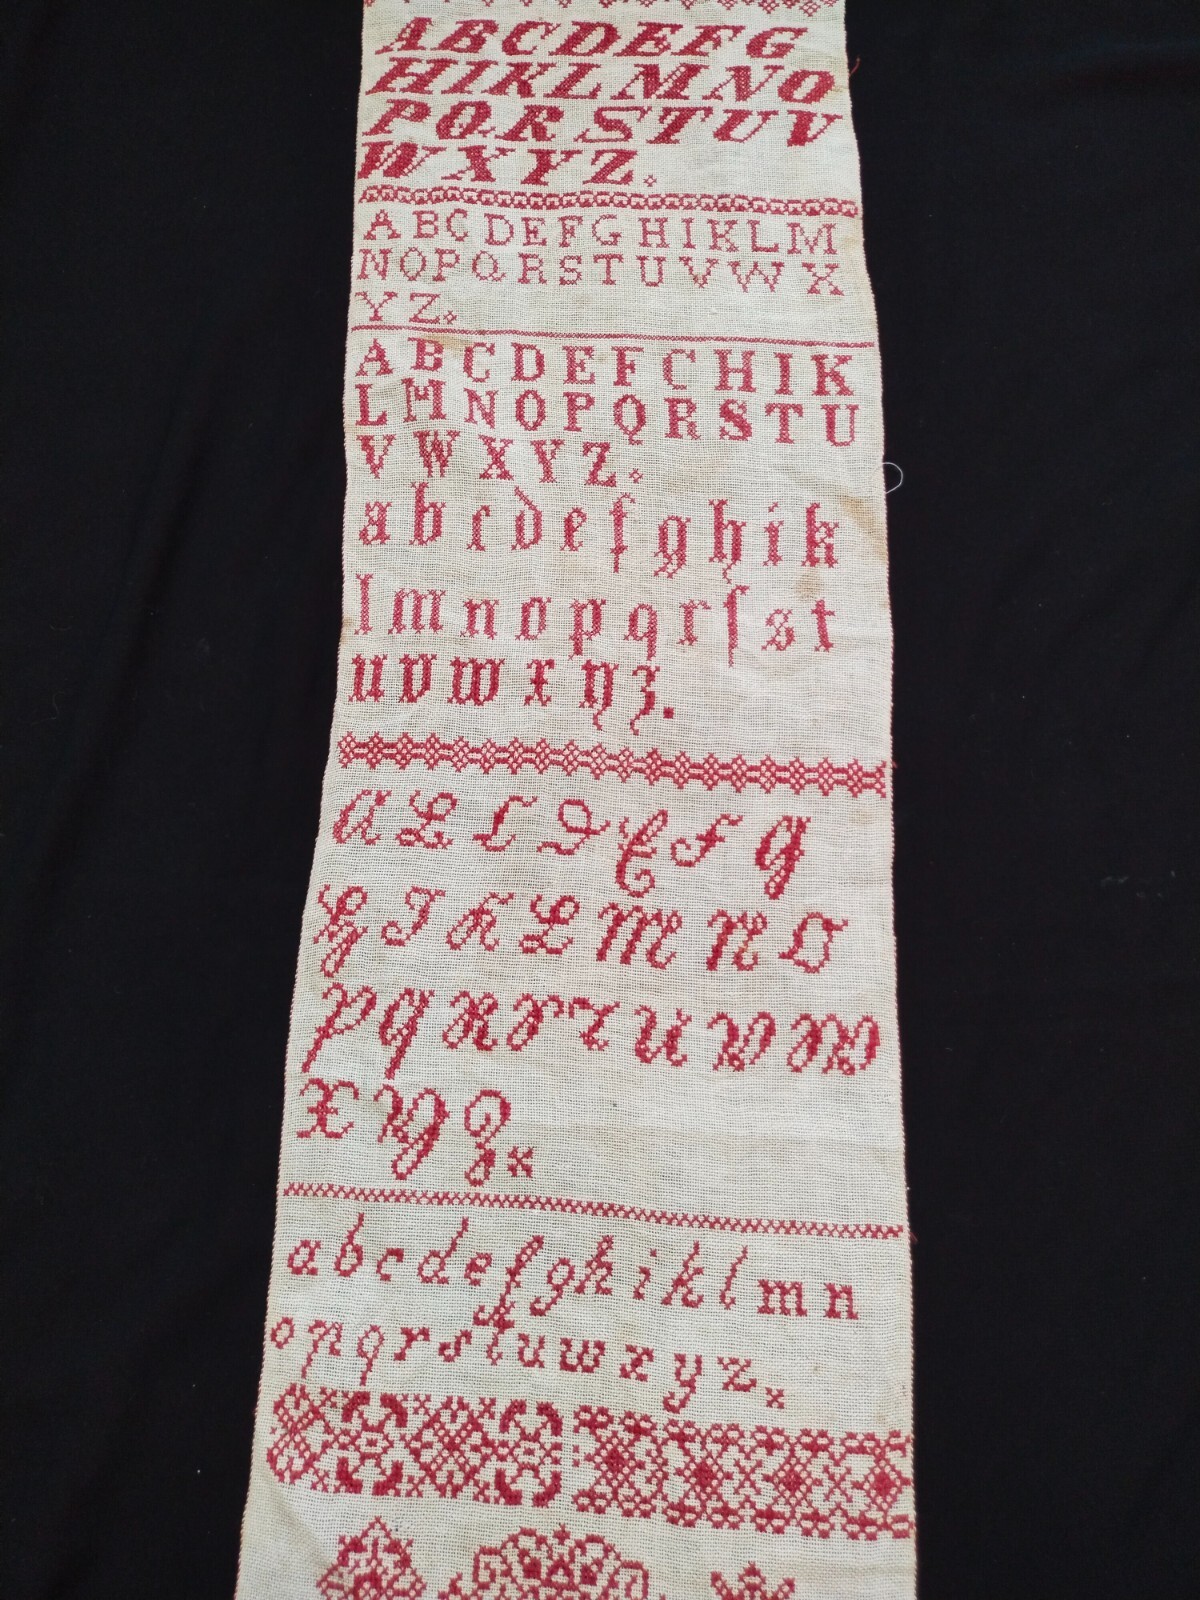 ABCDEFG
HIKLMNO
PQRSTUV
WXYZ.
ABCDEFGHIKLM
NOPQRSTUVWX
YZ.
ABCDEFCHIK
LMNOPQRSTU
VWXYZ.
abcdefghik
lmnopqrſst
uvwxyz.
ABCDEFG
HIKLMNO
PQRSTUVW
XYZ.
abcdefghiklmn
opqrstuwxyz.